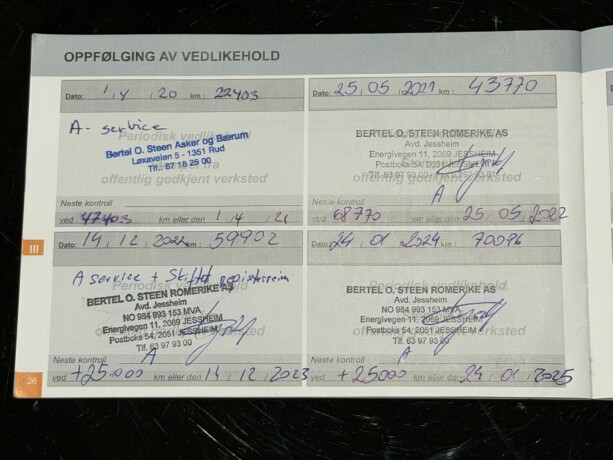 OPPFØLGING AV VEDLIKEHOLD
Dato: 1 / 4 / 20 km: 22403
A- service
Periodisk vedlikehold
Bertel O. Steen Asker og Bærum
Løxaveien 5 - 1351 Rud
Tlf.: 67 18 25 00
offentlig godkjent verksted
Neste kontroll
ved 47403 km eller den 1 / 4 / 21
Dato: 25.05.2021 km: 43770
BERTEL O. STEEN ROMERIKE AS
Avd. Jessheim
Energivegen 11, 2069 JESSHEIM
Postboks 54, 2051 JESSHEIM
Tlf. 63 97 93 00
A
Neste kontroll
ved 68770 km eller den 25.05.2022
III
Dato: 14.12.2022 km: 59902
A service + Skiftet registerreim
BERTEL O. STEEN ROMERIKE AS
Avd. Jessheim
NO 984 993 153 MVA
Energivegen 11, 2069 JESSHEIM
Postboks 54, 2051 JESSHEIM
Tlf. 63 97 93 00
A
Neste kontroll
ved +25.000 km eller den 14.12.2023
Dato: 24.01.2024 km: 70096
BERTEL O. STEEN ROMERIKE AS
Avd. Jessheim
NO 984 993 153 MVA
Energivegen 11, 2069 JESSHEIM
Postboks 54, 2051 JESSHEIM
Tlf. 63 97 93 00
A
Neste kontroll
ved +25000 km eller den 24.01.2025
26